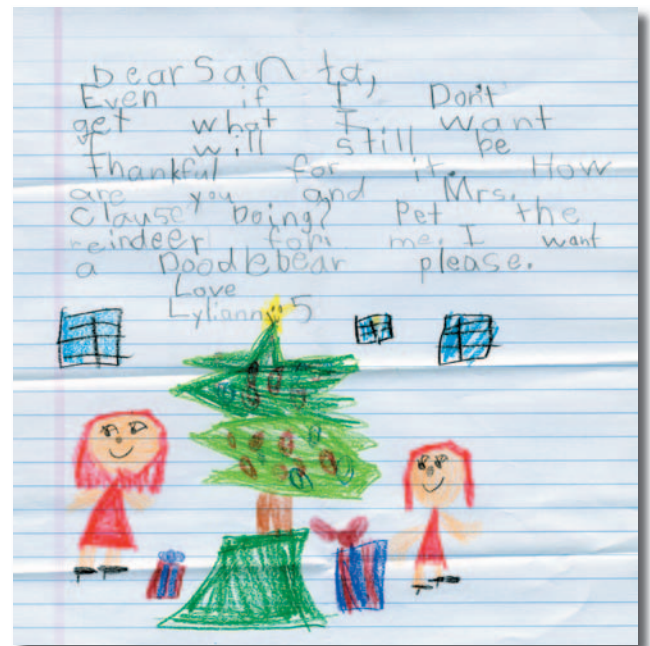 Dear Santa,
Even if I Don't
get what I want
I will still be
thankful for it. How
are you and Mrs.
Clause Doing? Pet the
reindeer for me. I want
a Doodlebear please.
Love
Lyliann 5